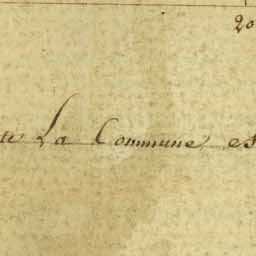 20
La Commune es